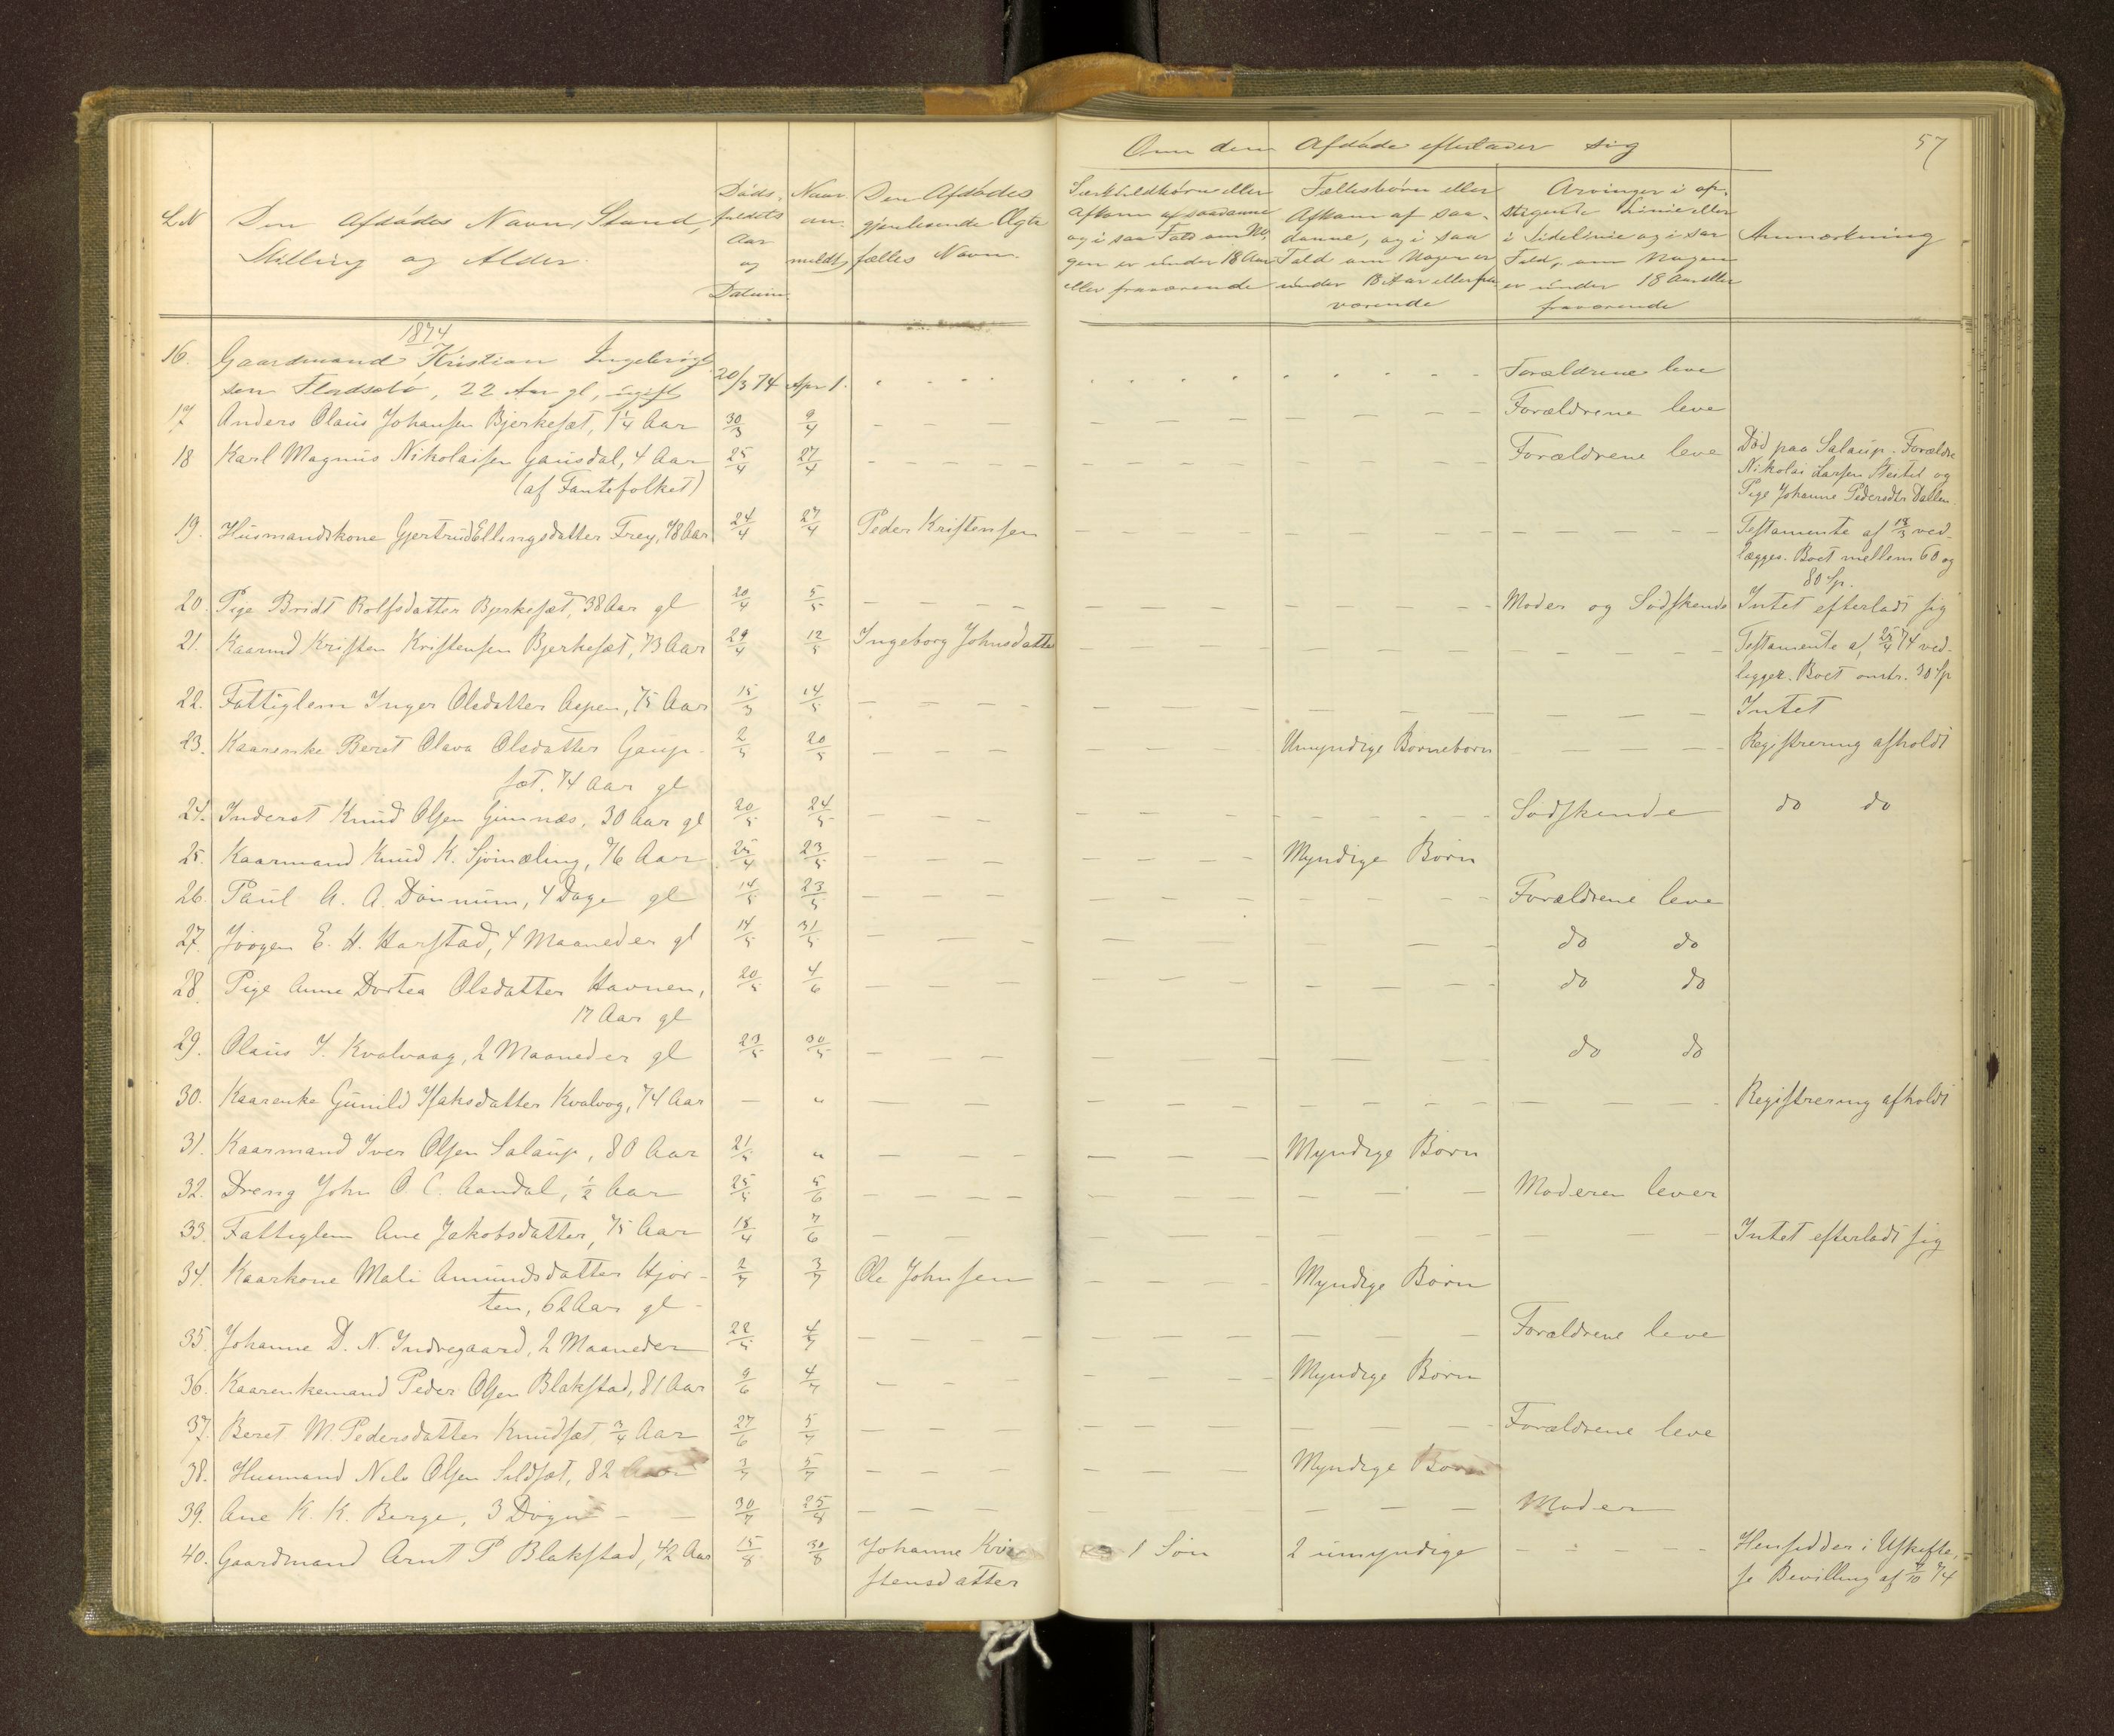 57
Om den Afdøde efterlader sig
L.N
Den Afdødes Navn, Stand,
Stilling og Alder.
Døds-
faldets
Aar
og
Datum
Naar
an-
meldt
Den Afdødes
gjenlevende Ægte
fælles Navn.
Særkuldbørn eller
Afkom af saadanne
og i saa Fald om No-
gen er under 18 Aar
eller fraværende
Fællesbørn eller
Afkom af saa-
danne, og i saa
Fald om Nogen er
under 18 Aar eller fra
værende
Arvinger i op-
stigende Linie eller
i Sidelinie og i saa
Fald, om Nogen
er under 18 Aar eller
fraværende
Anmærkning
1874
16. Gaardmand Kristian Ingebrigt-
sen Fladsetø, 22 Aar gl, ugift 20/3 74 Apr 1. Forældrene leve
17 Anders Olaus Johansen Bjerkesæt, 1 1/4 Aar 30/3 9/4 — Forældrene leve
18 Karl Magnus Nikolaisen Gausdal, 4 Aar 25/4 27/4 — Forældrene leve Død paa Salaup. Forældre
(af Fantefolket) Nikolai Larsen og
Pige Johanne Pedersdtr Dallen
19. Husmandskone Gjertrud Ellingsdatter Frey, 78 Aar 24/4 27/4 Peder Kristensen — Testamente af 18/3 ved-
lægges. Boet mellem 60 og
80 Sp.
20. Pige Bridt Rolfsdatter Bjerkesæt, 38 Aar gl 20/4 5/5 — Moder og Sødskende Intet efterladt sig
21. Kaarmd Kristen Kristensen Bjerkesæt, 73 Aar 29/4 12/5 Ingeborg Johnsdatter — Testamente af 25/4 74 ved-
ligger. Boet omtr. 30 Sp
22. Fattiglem Inger Olsdatter Aspen, 75 Aar 15/3 14/5 — Intet
23. Kaarenke Beret Olava Olsdatter Gaup- 2/5 20/5 — Umyndige Børnebørn — Registrering afholdt
sæt. 74 Aar gl
24. Inderst Knud Olsen Gimnæs, 30 Aar gl 20/5 24/5 — Sødskende do do
25. Kaarmand Knud K. Sjømæling, 76 Aar 25/4 23/5 — Myndige Børn
26. Paul A. A. Dønnum, 4 Dage gl 14/5 23/5 — Forældrene leve
27. Jørgen E. H. Harstad, 4 Maaneder gl 14/5 31/5 — do do
28. Pige Anne Dortea Olsdatter Havnen, 20/5 4/6 — do do
17 Aar gl
29. Olaus J. Kvalvaag, 2 Maaneder gl 23/5 30/5 — do do
30. Kaarenke Gunild Isaksdatter Kvalvog, 74 Aar — " — Registrering afholdt
31. Kaarmand Iver Olsen Salaup, 80 Aar 21/5 " — Myndige Børn
32. Dreng John O. C. Aandal, 1/2 Aar 25/5 5/6 — Moderen lever
33. Fattiglem Ane Jakobsdatter, 75 Aar 18/4 7/6 — Intet efterladt sig
34. Kaarkone Mali Amundsdatter Hjor- 2/7 3/7 Ole Johnsen — Myndige Børn
ten, 62 Aar gl -
35. Johanne D. N. Indregaard, 2 Maaneder 22/5 4/7 — Forældrene leve
36. Kaarenkemand Peder Olsen Blakstad, 81 Aar 9/6 4/7 — Myndige Børn
37. Beret M. Pedersdatter Knudsæt, 3/4 Aar 27/6 5/7 — Forældrene leve
38. Husmand Nils Olsen Sildsæt, 82 Aar 3/7 5/7 — Myndige Børn
39. Ane K. K. Berge, 3 Døgn — 30/7 25/8 — Moder
40. Gaardmand Arnt P Blakstad, 42 Aar 15/8 30/8 Johanne Kri- 1 Søn 2 umyndige — Hensidder i Uskifte,
stensdatter se Bevilling af 7/10 74